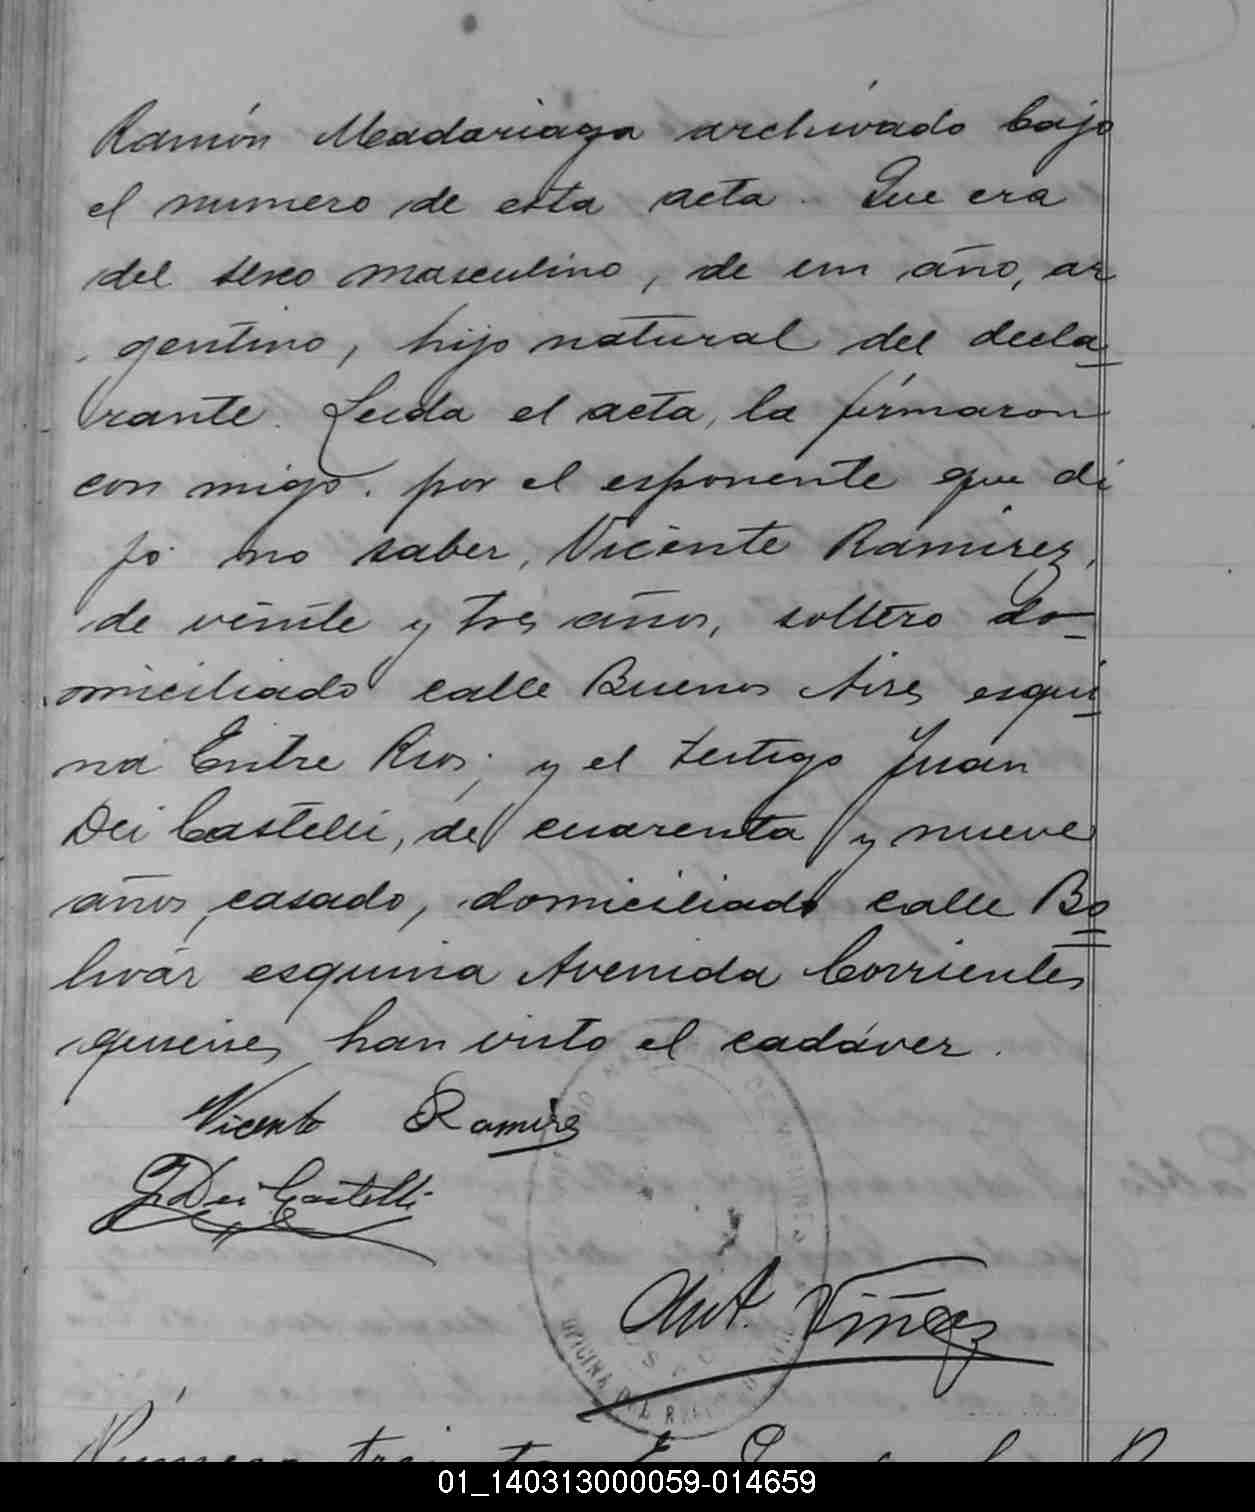 Ramón Madariaga archivado bajo
el numero de esta acta. Que era
del sexo masculino, de un año, ar
gentino, hijo natural del decla
rante. Leida el acta, la firmaron
con migo. por el esponente que di
jo no saber, Vicente Ramirez,
de veinte y tres años, soltero do-
miciliado calle Buenos Aires esqui
na Entre Rios; y el testigo Juan
Dei Castelli, de cuarenta y nueve
años, casado, domiciliado calle Bo
livar esquina Avenida Corrientes
quienes han visto el cadáver.
Vicente Ramires
J Dei Castelli
Ant.
OFICINA DEL
Número trei
01_140313000059-014659